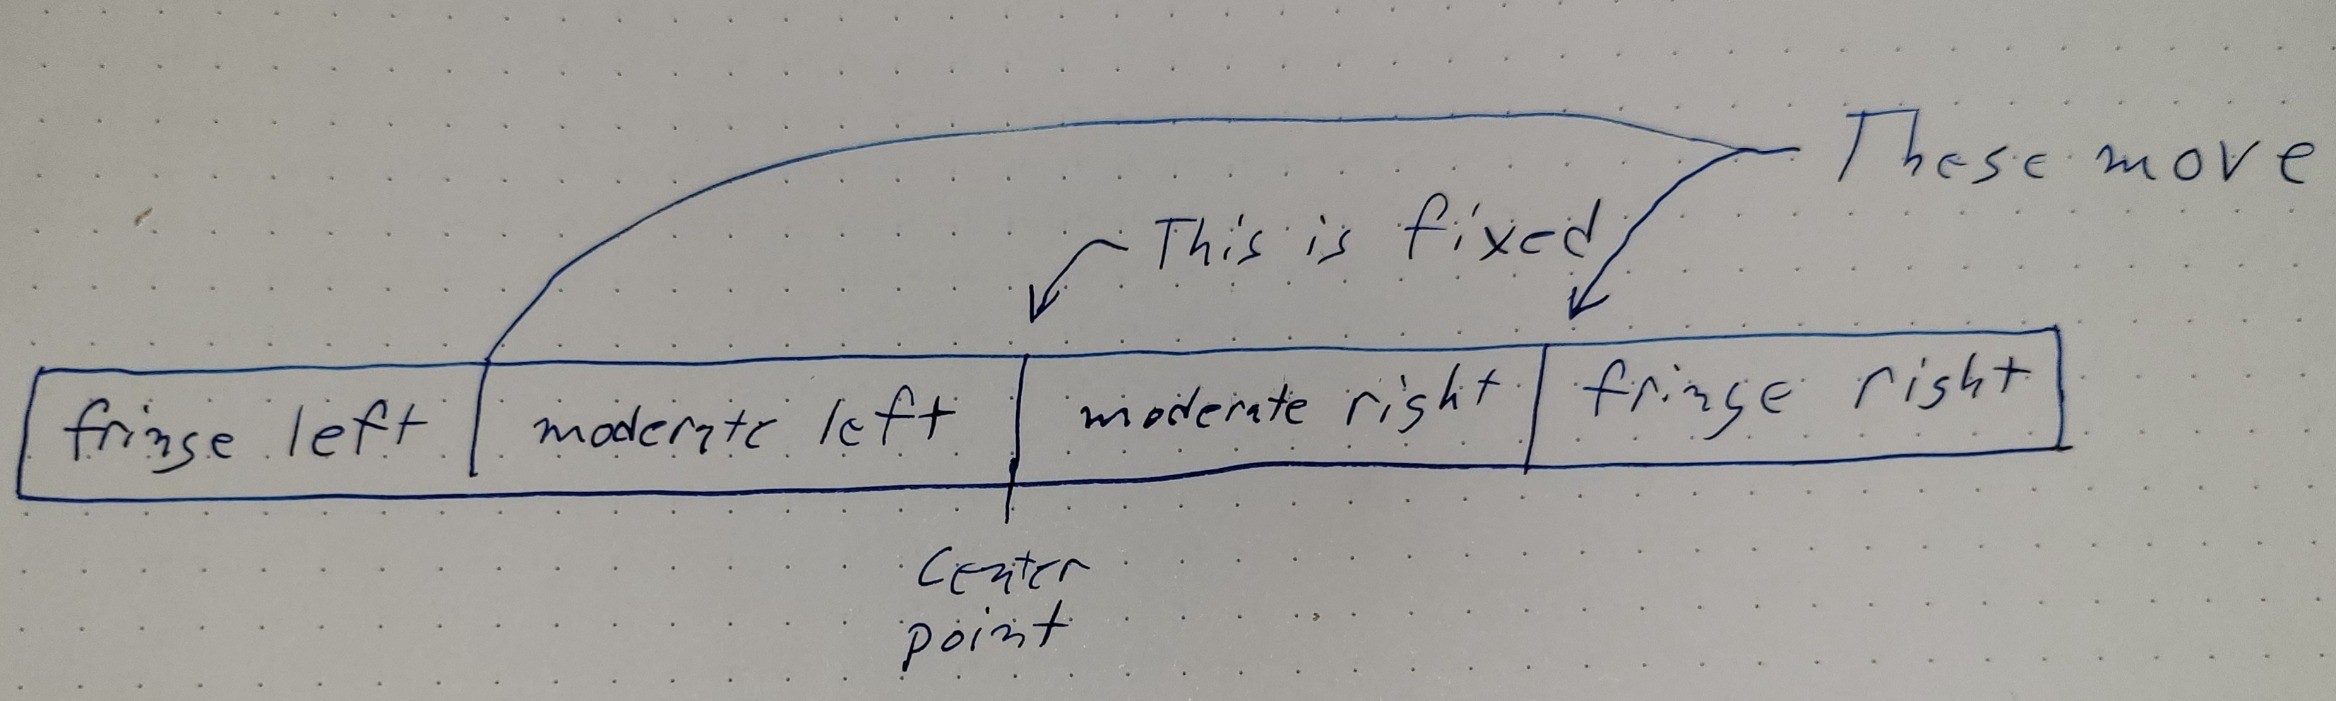 These move
This is fixed
fringe left moderate left moderate right fringe right
Center
point